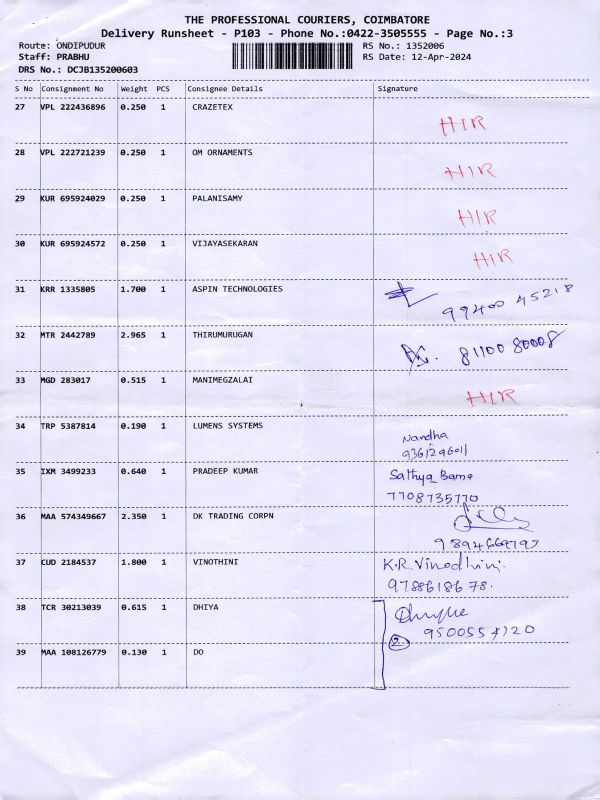 THE PROFESSIONAL COURIERS, COIMBATORE
Delivery Runsheet - P103 - Phone No.:0422-3505555 - Page No.:3
Route: ONDIPUDUR RS No.: 1352006
Staff: PRABHU RS Date: 12-Apr-2024
DRS No.: DCJB135200603
S No Consignment No Weight PCS Consignee Details Signature
27 VPL 222436896 0.250 1 CRAZETEX HIR
28 VPL 222721239 0.250 1 OM ORNAMENTS HIR
29 KUR 695924029 0.250 1 PALANISAMY HIR
30 KUR 695924572 0.250 1 VIJAYASEKARAN HIR
31 KRR 1335805 1.700 1 ASPIN TECHNOLOGIES 99400 45218
32 MTR 2442789 2.965 1 THIRUMURUGAN 81100 80008
33 MGD 283017 0.515 1 MANIMEGZALAI HIR
34 TRP 5387814 0.190 1 LUMENS SYSTEMS Nandha
9361296011
35 IXM 3499233 0.640 1 PRADEEP KUMAR Sathya Bama
7708735770
36 MAA 574349667 2.350 1 DK TRADING CORPN
9894669793
37 CUD 2184537 1.800 1 VINOTHINI K.R.Vinodhini.
9788618678.
38 TCR 30213039 0.615 1 DHIYA
2
39 MAA 108126779 0.130 1 DO